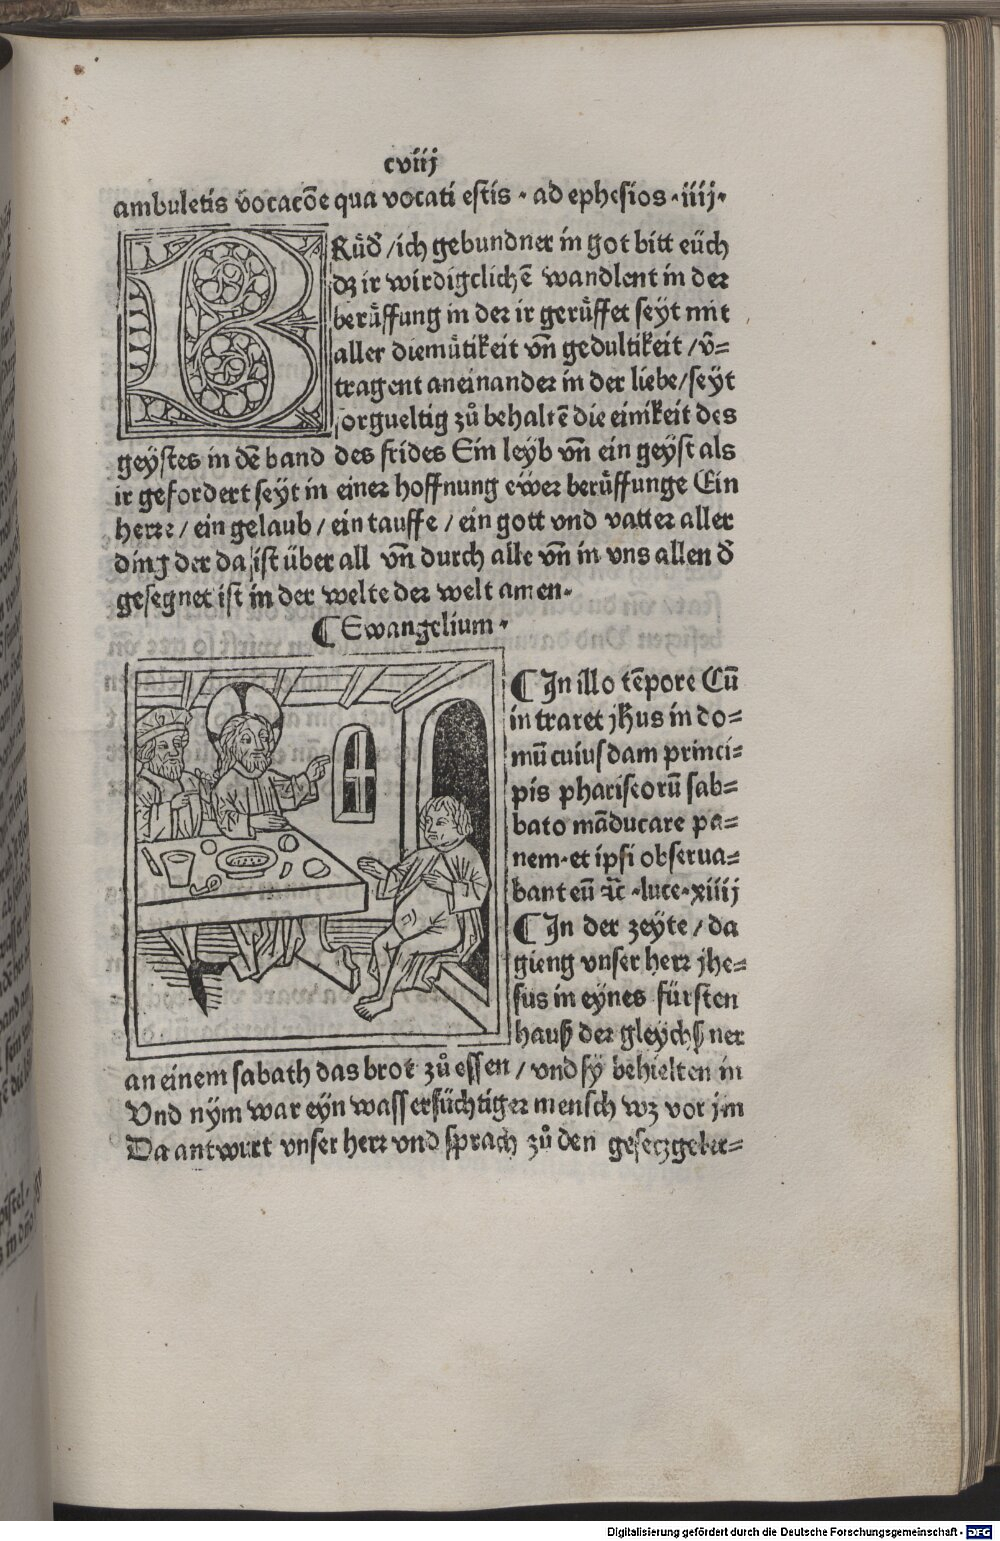 cviij
ambuletis vocacōe qua vocati estis · ad ephesios · iiij·
BRuͤd /ich gebundner in got bitt euch
dz ir wirdigclichē wandlent in der
beruͤffung in der ir geruͤffet seyt mit
aller diemuͤtikeit vn̄ gedultikeit /v̄=
tragent aneinander in der liebe/seyt
sorgueltig zuͦ behaltē die einikeit des
geystes in dē band des frides Ein leyb vn̄ ein geyst als
ir gefordert seyt in einer hoffnung ewer beruͤffunge Ein
herre / ein gelaub / ein tauffe / ein gott vnd vatter aller
ding der da ist über all vn̄ durch alle vn̄ in vns allen d
gesegnet ist in der welte der welt amen·
¶ Ewangelium ·
¶ In illo tēpore Cū
intraret jhus in do=
mū cuiusdam princi=
pis phariseorū sab=
bato māducare pa=
nem·et ipsi obserua=
bant eū ⁊c̄ ·luce·xiiij
¶ In der zeÿte / da
gieng vnser herr jhe=
sus in eÿnes fürsten
hauß der gleychßner
an einem sabath das brot zuͦ essen / vnd sÿ behielten in
Vnd nÿm war eÿn wassersüchtiger mensch wz vor jm
Da antwurt vnser herr vnd sprach zuͦ den gesetzgeber=
Digitalisierung gefördert durch die Deutsche Forschungsgemeinschaft - DFG